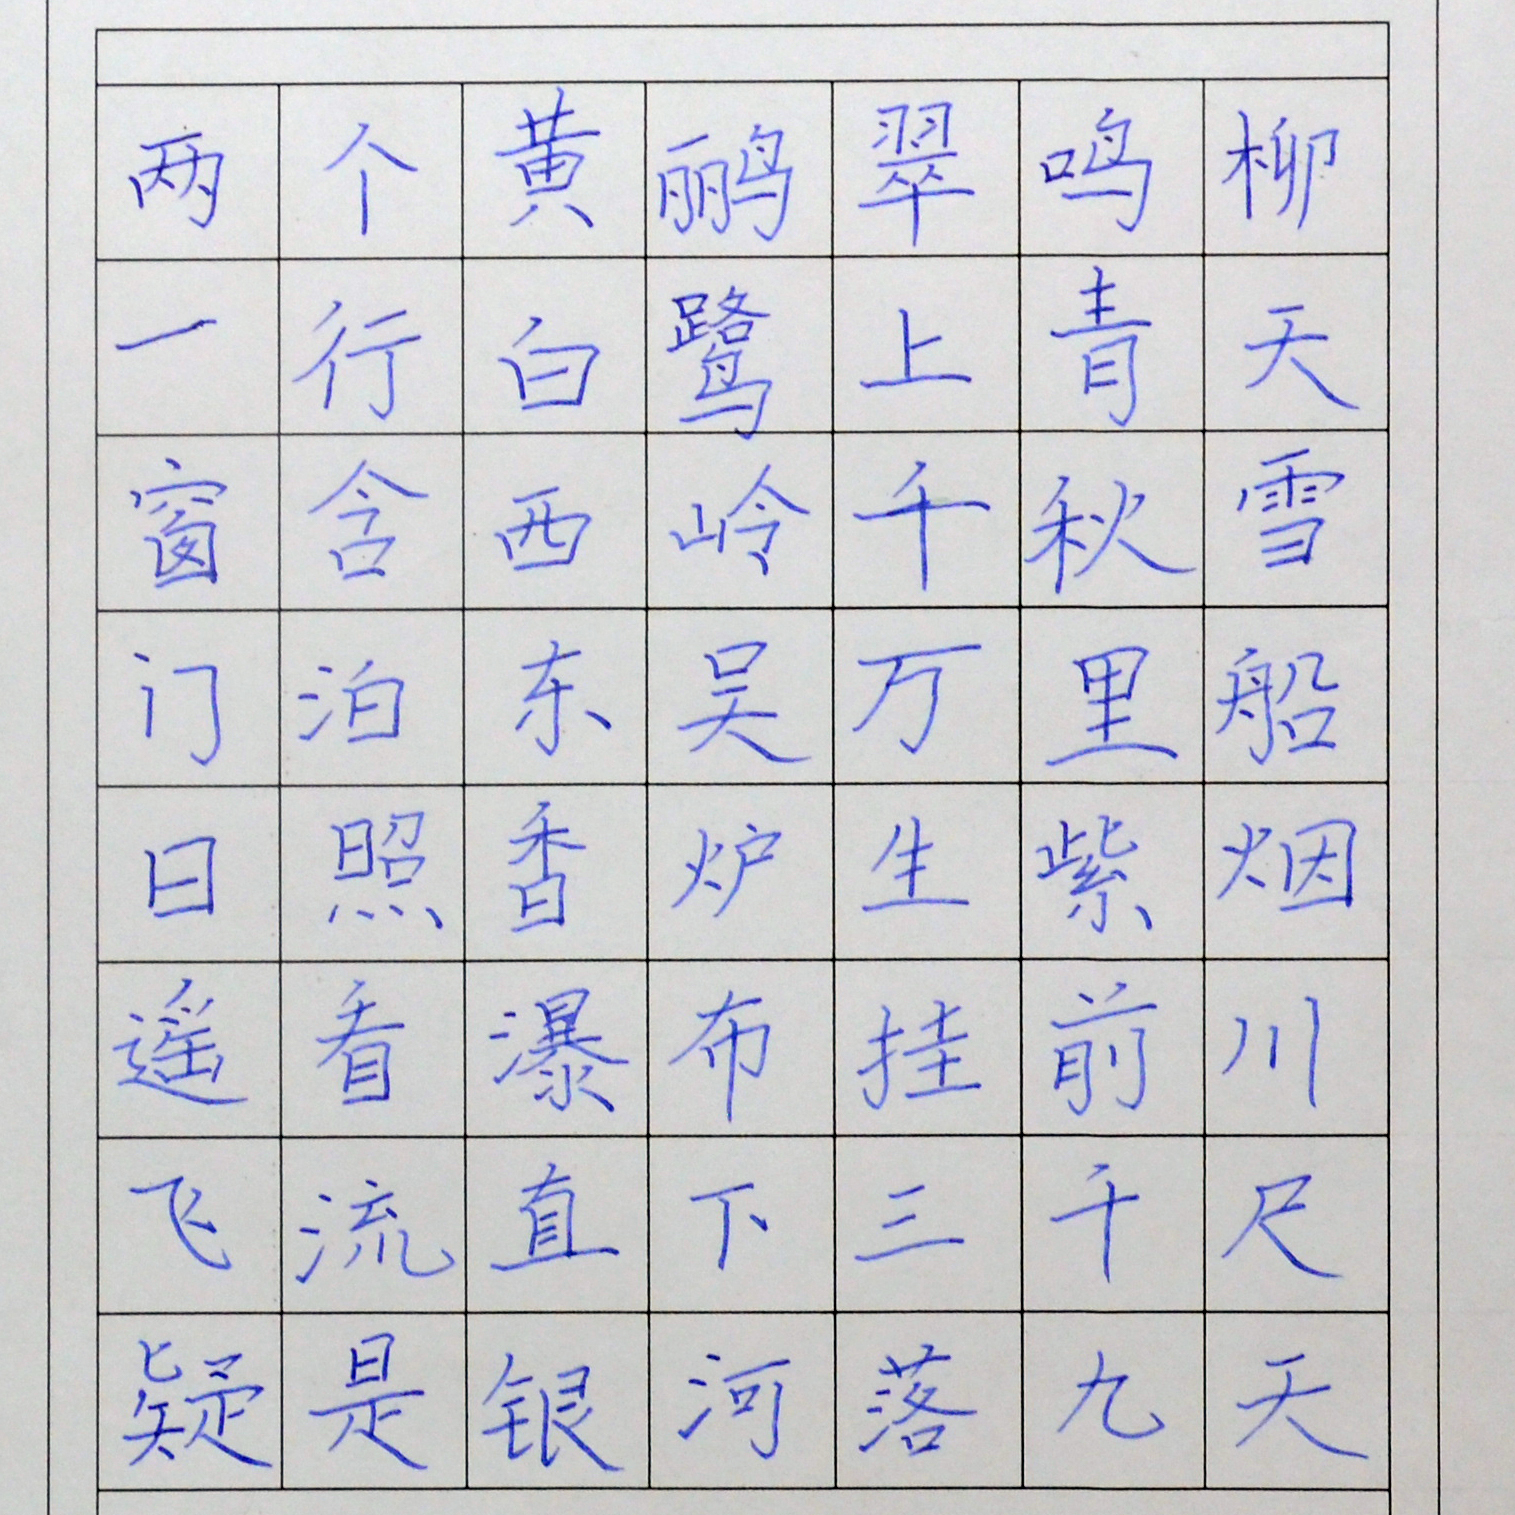 两个黄鹂翠鸣柳
一行白鹭上青天
窗含西岭千秋雪
门泊东吴万里船
日照香炉生紫烟
遥看瀑布挂前川
飞流直下三千尺
疑是银河落九天